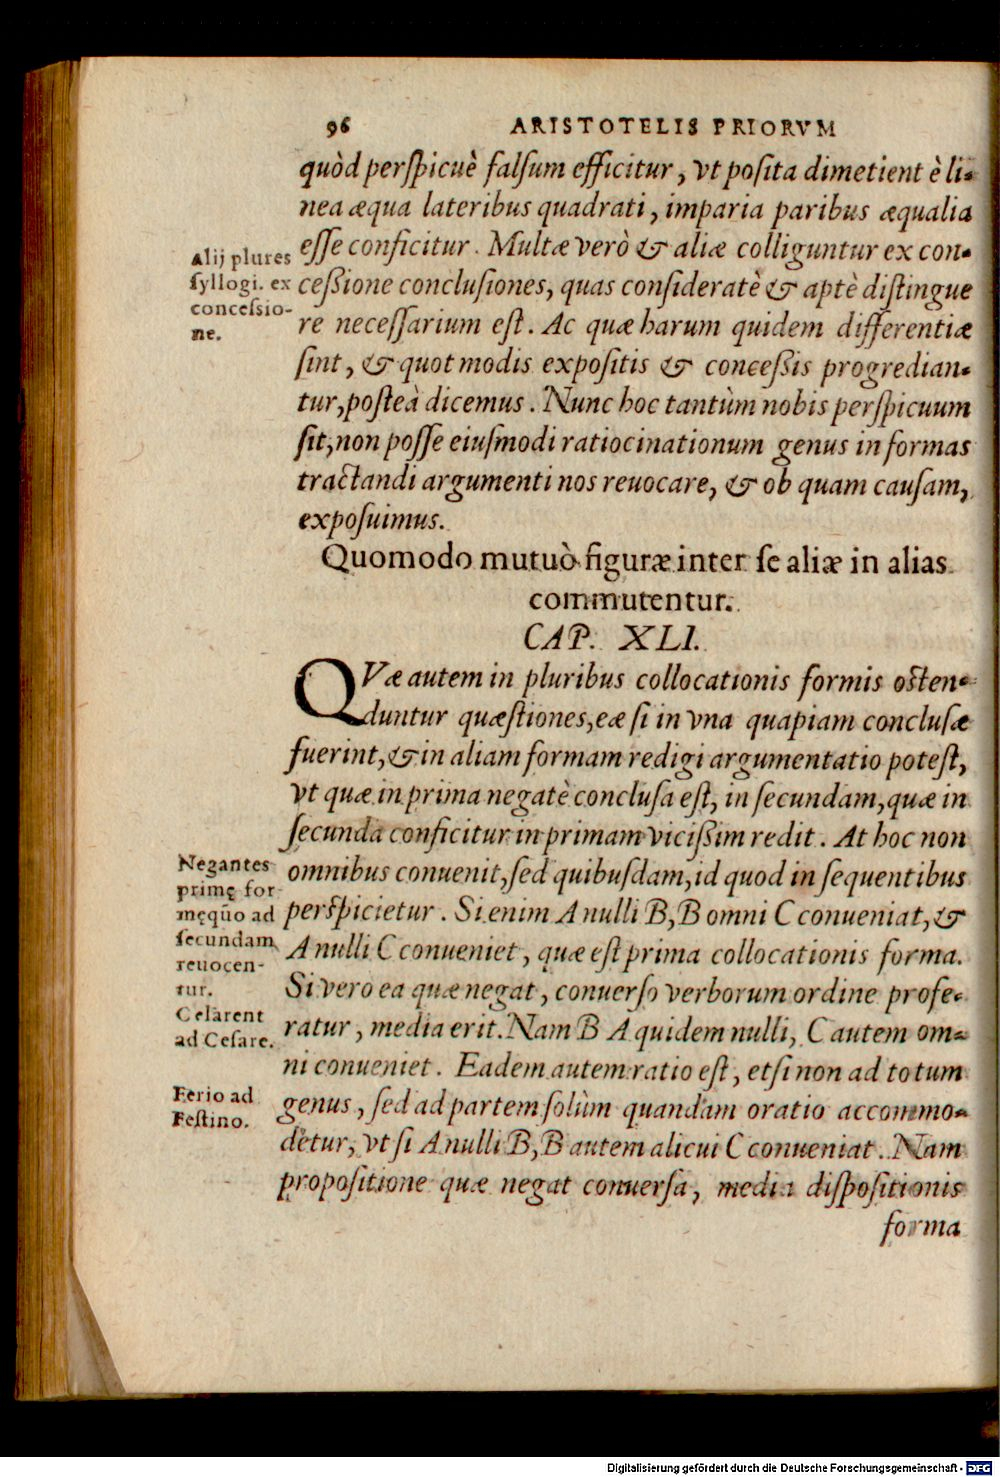 96 ARISTOTELIS PRIORVM
quòd perſpicuè falſum efficitur, vt poſita dimetientè li-
nea æqua lateribus quadrati, imparia paribus æqualia
eſſe conficitur. Multæ verò & aliæ colliguntur ex con-
ceßione concluſiones, quas conſideratè & aptè diſtingue
re neceſſarium eſt. Ac quæ harum quidem differentiæ
ſint, & quot modis expoſitis & conceßis progredian-
tur, poſteà dicemus. Nunc hoc tantùm nobis perſpicuum
ſit, non poſſe eiuſmodi ratiocinationum genus in formas
tractandi argumenti nos reuocare, & ob quam cauſam,
expoſuimus.
Alij plures
ſyllogi. ex
conceſsio-
ne.
Quomodo mutuò figuræ inter ſe aliæ in alias
commutentur.
CAP. XLI.
QVæ autem in pluribus collocationis formis oſten-
duntur quæſtiones, eæ ſi in vna quapiam concluſæ
fuerint, & in aliam formam redigi argumentatio poteſt,
vt quæ in prima negatè concluſa eſt, in ſecundam, quæ in
ſecunda conficitur in primam vicißim redit. At hoc non
omnibus conuenit, ſed quibuſdam, id quod in ſequentibus
perſpicietur. Si enim A nulli B, B omni C conueniat, &
A nulli C conueniet, quæ eſt prima collocationis forma.
Si vero ea quæ negat, conuerſo verborum ordine profe-
ratur, media erit. Nam B A quidem nulli, C autem om-
ni conueniet. Eadem autem ratio eſt, etſi non ad totum
genus, ſed ad partem ſolùm quandam oratio accommo-
detur, vt ſi A nulli B, B autem alicui C conueniat. Nam
propoſitione quæ negat conuerſa, media diſpoſitionis
forma
Negantes
primę for
mę quō ad
ſecundam
reuocen-
tur.
Celarent
ad Ceſare.
Ferio ad
Feſtino.
Digitalisierung gefördert durch die Deutsche Forschungsgemeinschaft - DFG